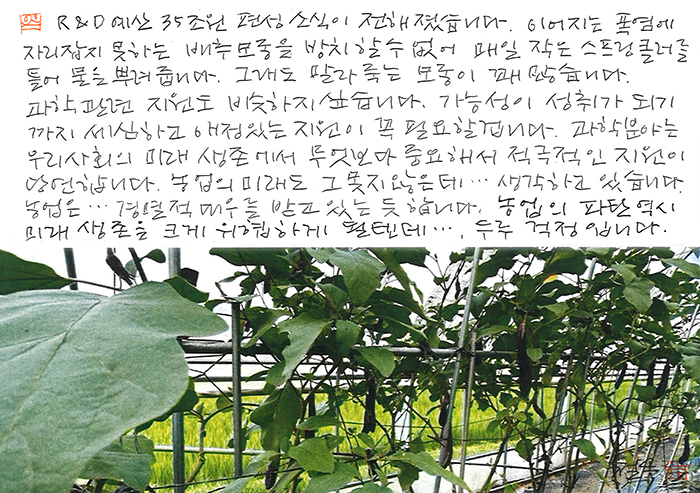 R&D 예산 35조원 편성 소식이 전해졌습니다. 이어지는 폭염에
자리잡지 못하는 배추모종을 방치할 수 없어 매일 작은 스프링클러를
틀어 물을 뿌려줍니다. 그래도 말라죽는 모종이 꽤 많습니다.
과학관련 지원도 비슷하지 싶습니다. 가능성이 성취가 되기
까지 세심하고 애정있는 지원이 꼭 필요할겁니다. 과학분야는
우리사회의 미래 생존에서 무엇보다 중요해서 적극적인 지원이
당연합니다. 농업의 미래도 그 못지않은데… 생각하고 있습니다.
농업은… 경멸적 대우를 받고 있는 듯 합니다. 농업의 파탄 역시
미래 생존을 크게 위험하게 할텐데…, 두루 걱정입니다.